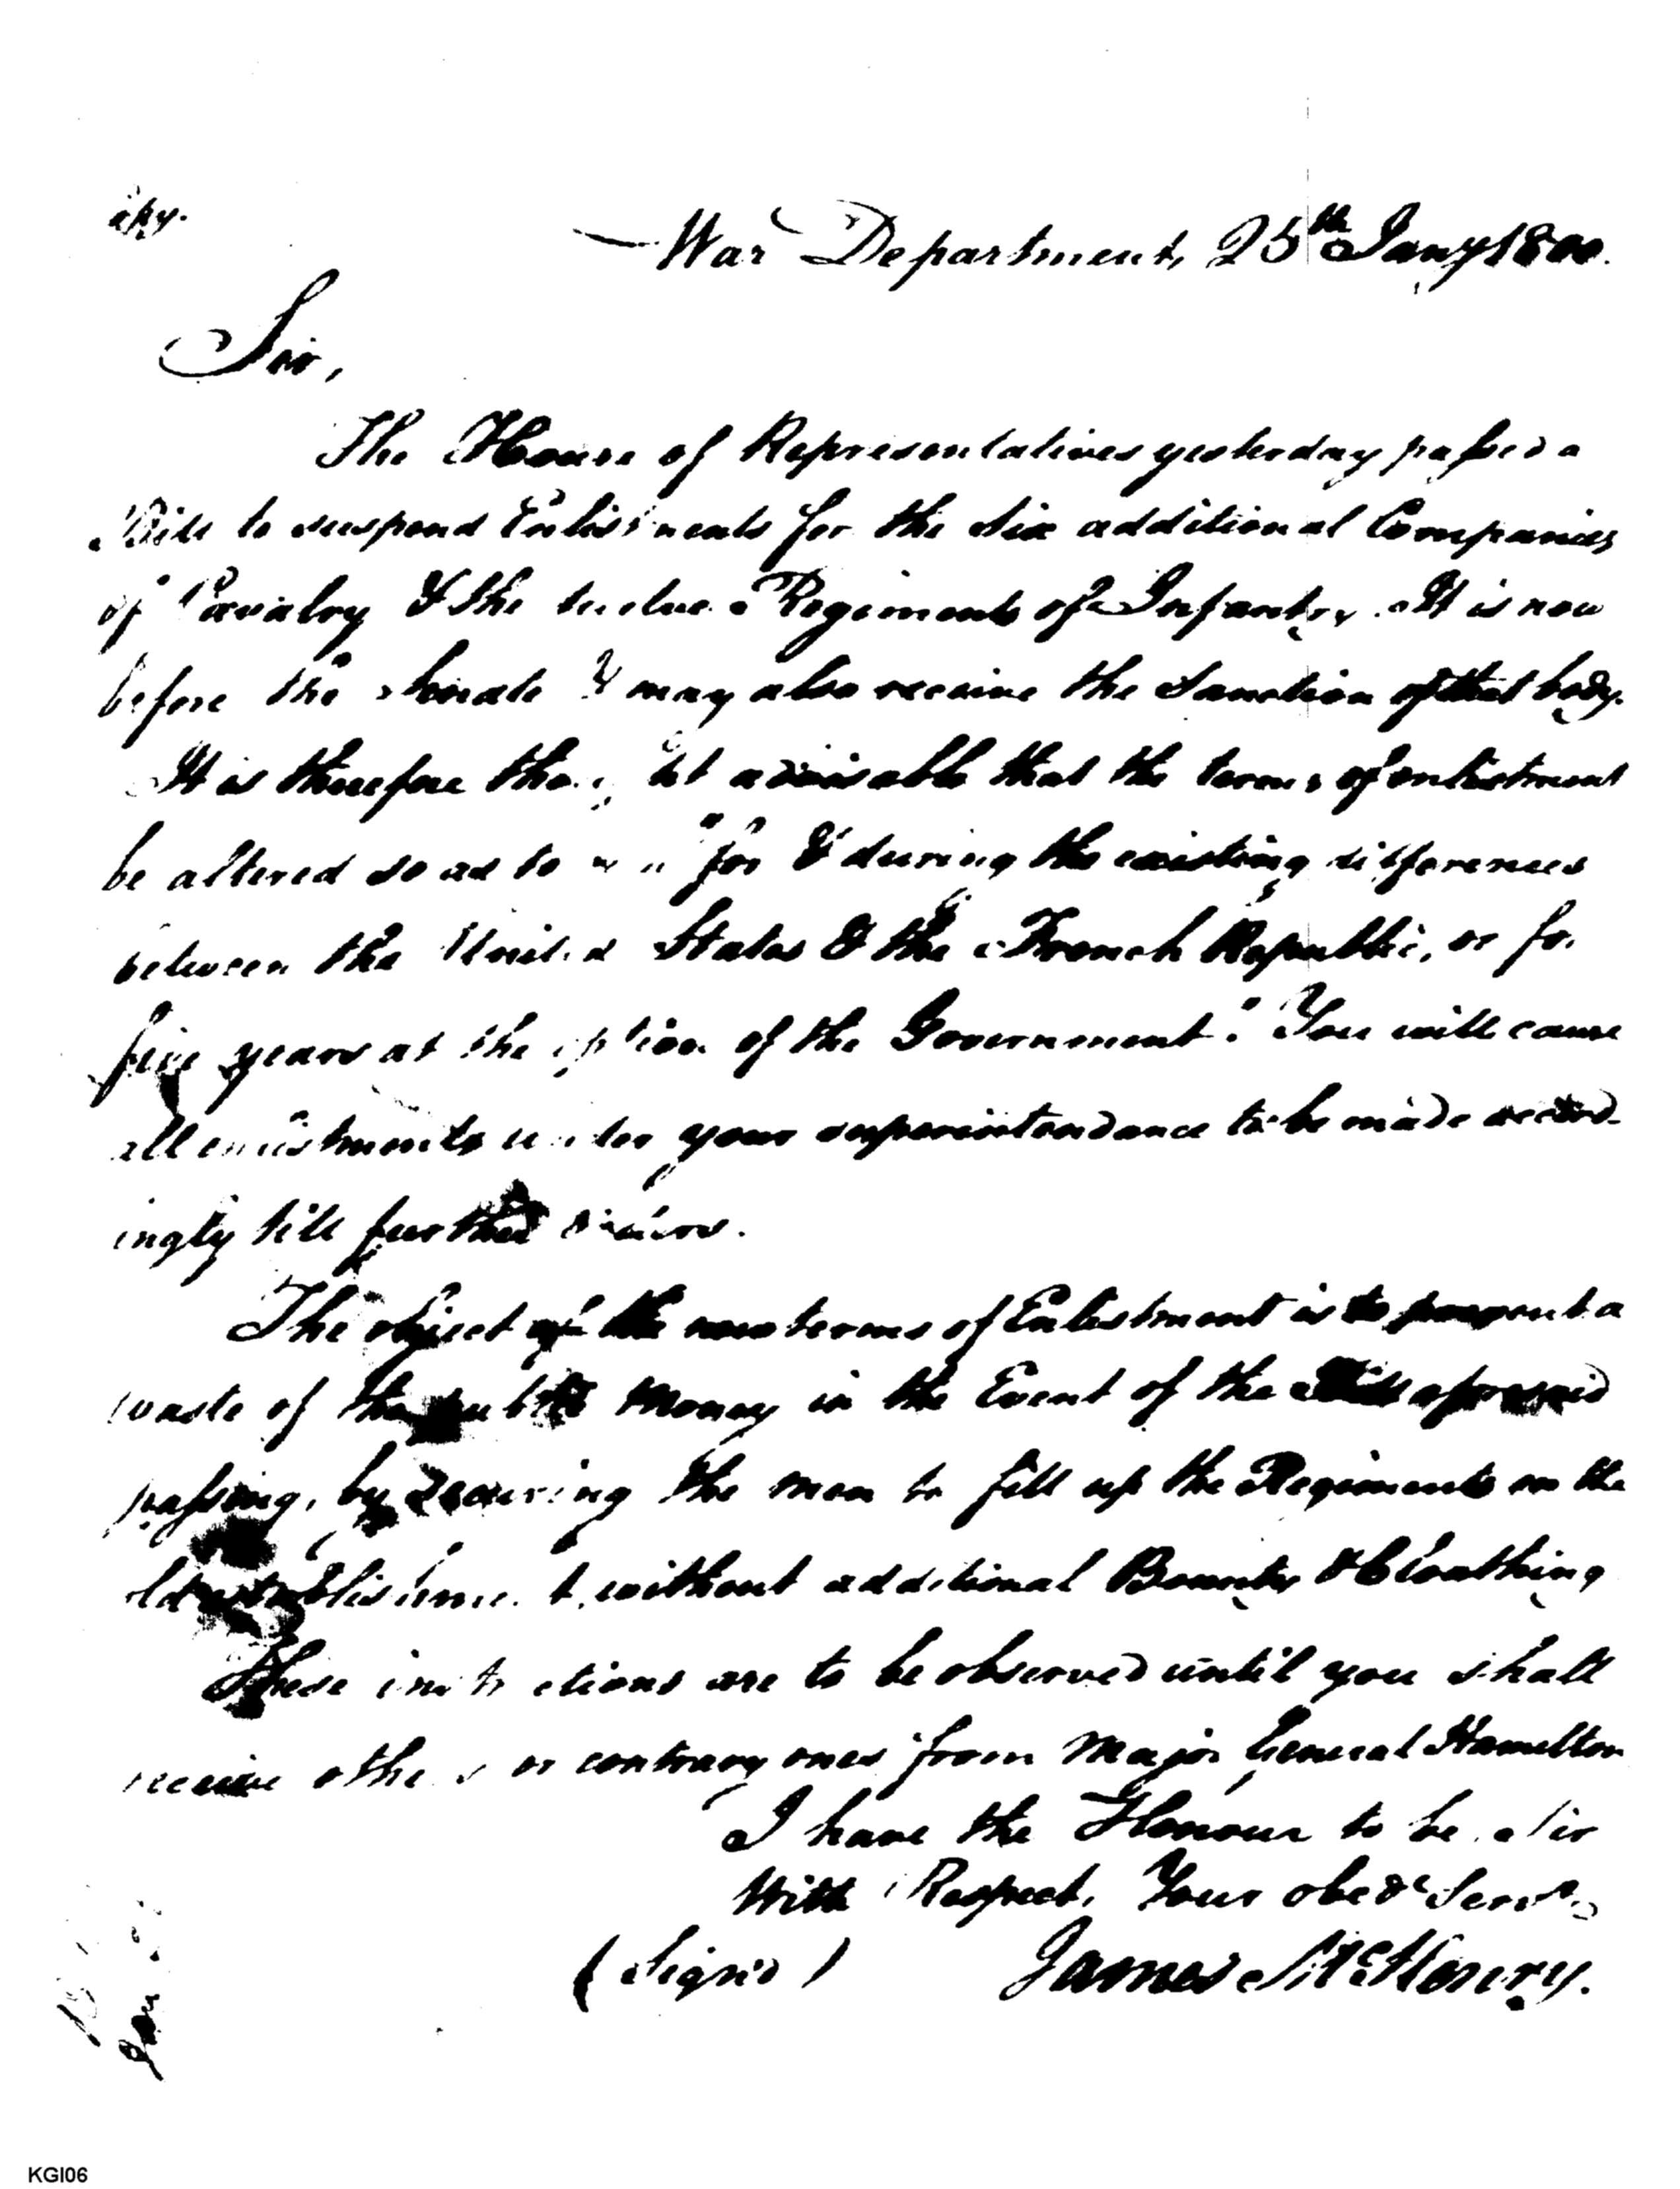 War Department, 25th Jany 1800.
Sir,
The House of Representatives yesterday passed a
Bill to suspend Enlistments for the six additional Companies
of Cavalry & the twelve Regiments of Infantry. It is now
before the Senate & may also receive the Sanction of that body.
It is therefore thought adviseable that the terms of enlistment
be altered so as to run "for & during the existing differences
between the United States & the French Republic, or for
five years at the option of the Government." You will cause
all enlistments under your superintendance to be made accord-
ingly till further orders.
The object of the new terms of Enlistment is to prevent a
waste of the public Money in the Event of the Bill aforesaid
passing, by securing the men to fill up the Regiments on the
old establishment, without additional Bounty & Cloathing
These instructions are to be observed until you shall
receive others or contrary ones from Major General Hamilton
I have the Honour to be, Sir
With Respect, Your obedt Servt
(Signed) James McHenry.
KGI06